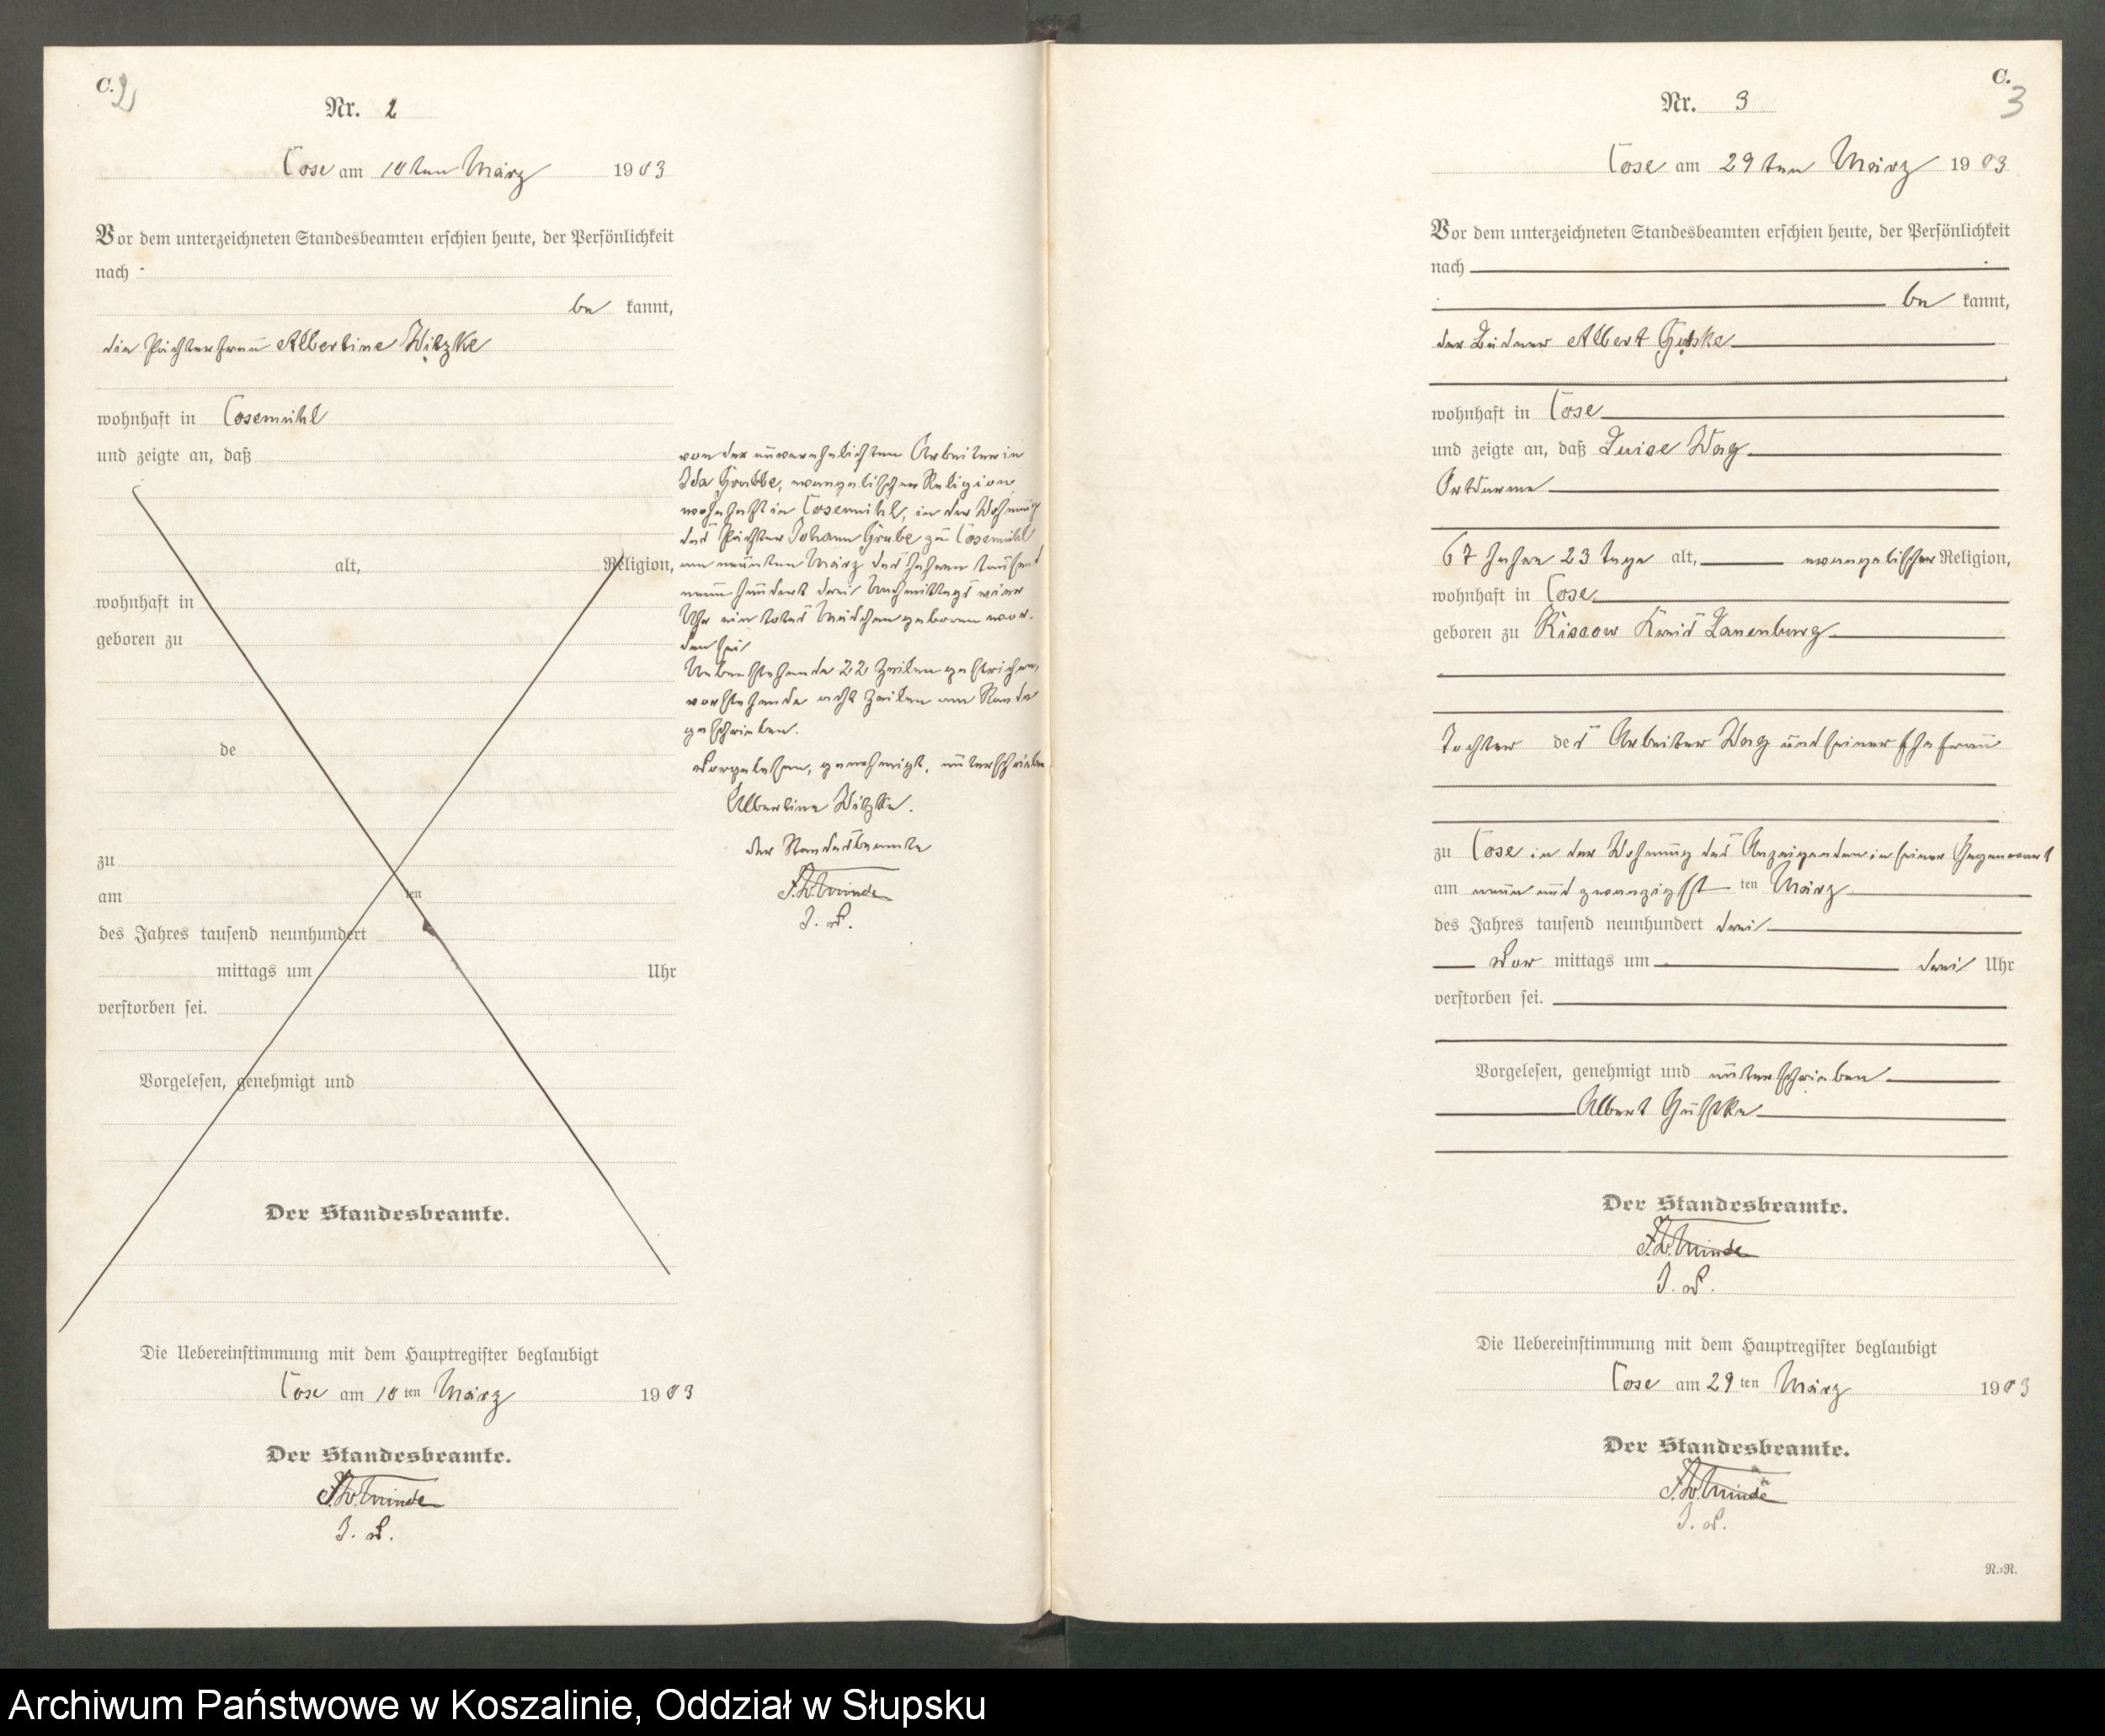 C. 2
Nr. 2
Cose am 10ten März 1903
Vor dem unterzeichneten Standesbeamten erschien heute, der Persönlichkeit
nach
be kannt,
die Pächterfrau Albertine Witzke
wohnhaft in Cosemühl
und zeigte an, daß
alt, Religion,
wohnhaft in
geboren zu
de
zu
am ten
des Jahres tausend neunhundert
mittags um Uhr
verstorben sei.
Vorgelesen, genehmigt und
Der Standesbeamte.
Die Uebereinstimmung mit dem Hauptregister beglaubigt
Cose am 10 ten März 1903
Der Standesbeamte.
J. V.
von der unverehelichten Arbeiterin
Ida Grubbe, evangelischer Religion,
wohnhaft in Cosemühl, in der Wohnung
des Pächter Johann Grube zu Cosemühl
am neunten März des Jahres tausend
neunhundert drei Nachmittags
Uhr ein totes Mädchen geboren wor-
den sei
Nebenstehende 22 Zeilen gestrichen,
vorstehende acht Zeilen am Rande
geschrieben.
Vorgelesen, genehmigt, unterschrieben
Albertine Witzke.
der Standesbeamte
J. V.
C.
3
Nr. 3
Cose am 29ten März 1903
Vor dem unterzeichneten Standesbeamten erschien heute, der Persönlichkeit
nach
be kannt,
der Büdner Albert Gutske
wohnhaft in Cose
und zeigte an, daß Luise Wag
Ortsarme
67 Jahre 23 Tage alt, evangelischer Religion,
wohnhaft in Cose
geboren zu Rissow Kreis Lauenburg
Tochter des Arbeiter Wag und seiner Ehefrau
zu Cose in der Wohnung des Anzeigenden in seiner Gegenwart
am neun und zwanzigst ten März
des Jahres tausend neunhundert drei
Vor mittags um drei Uhr
verstorben sei.
Vorgelesen, genehmigt und unterschrieben
Albert Gutske
Der Standesbeamte.
J. V.
Die Uebereinstimmung mit dem Hauptregister beglaubigt
Cose am 29 ten März 1903
Der Standesbeamte.
J. V.
N.=N.
Archiwum Państwowe w Koszalinie, Oddział w Słupsku